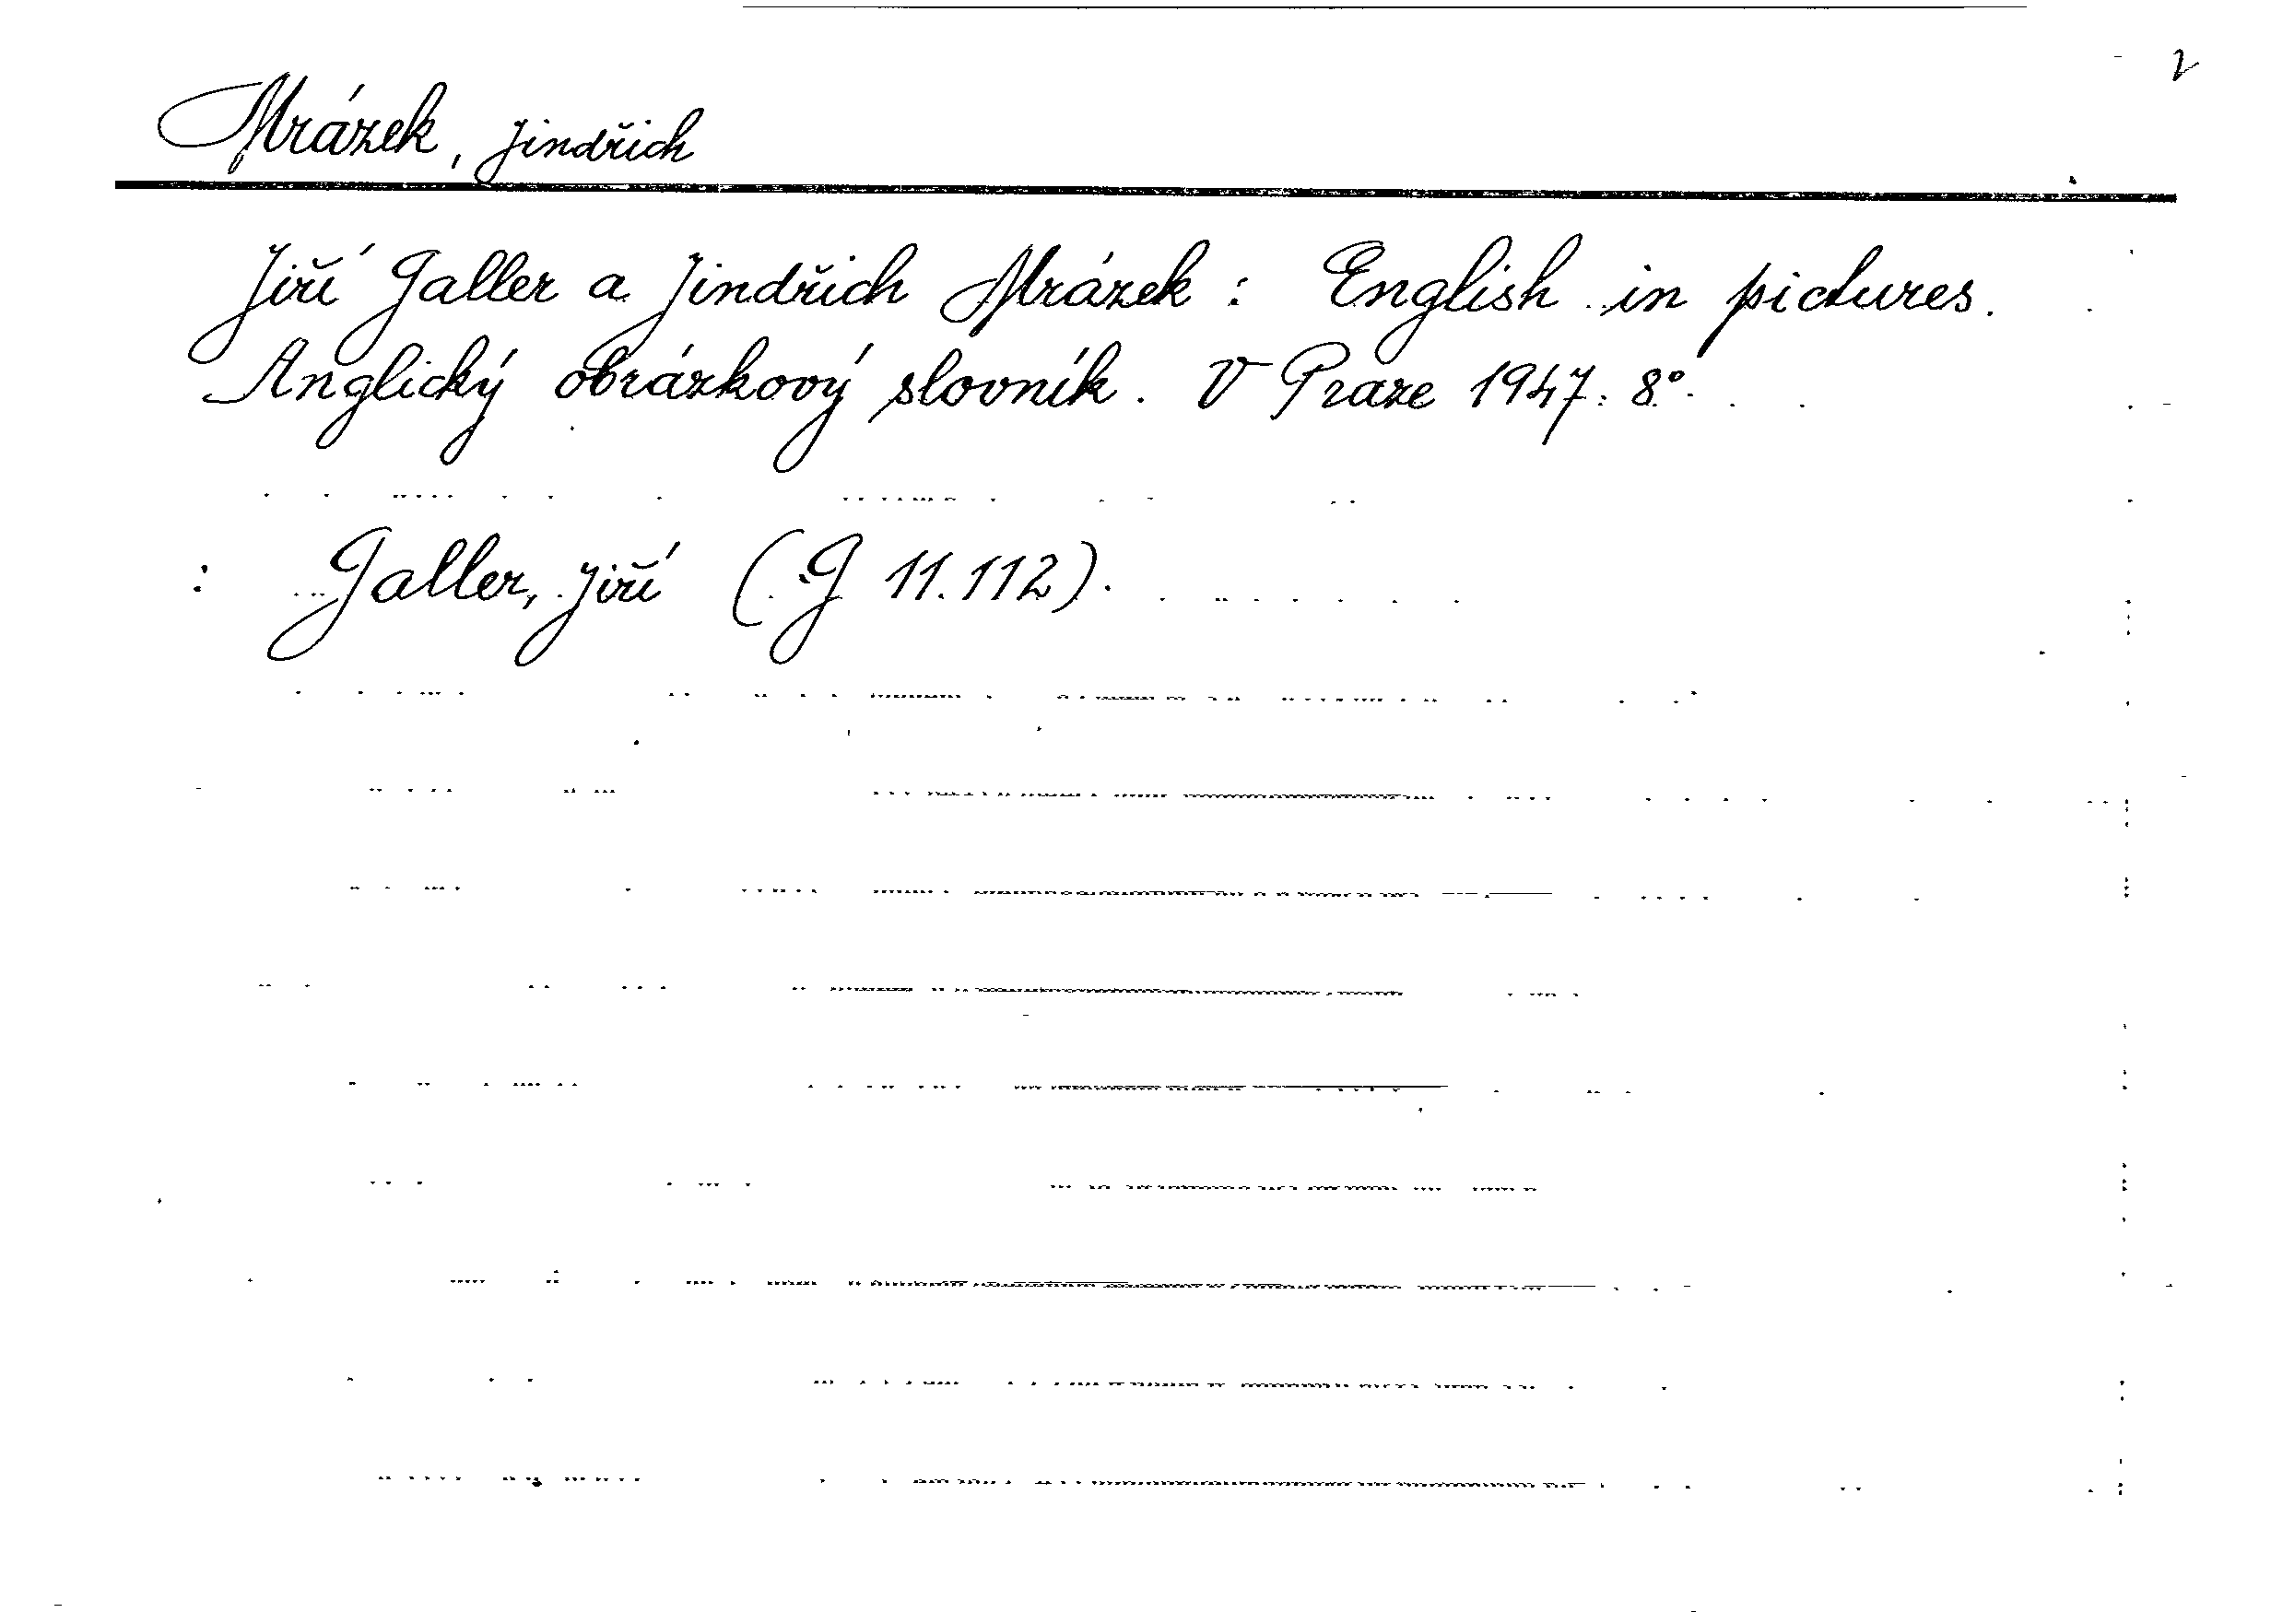 Mrázek, Jindřich
Jiří Galler a Jindřich Mrázek : English in pictures.
Anglický obrázkový slovník. V Praze 1947. 8°.
: Galler, Jiří (G 11.112).